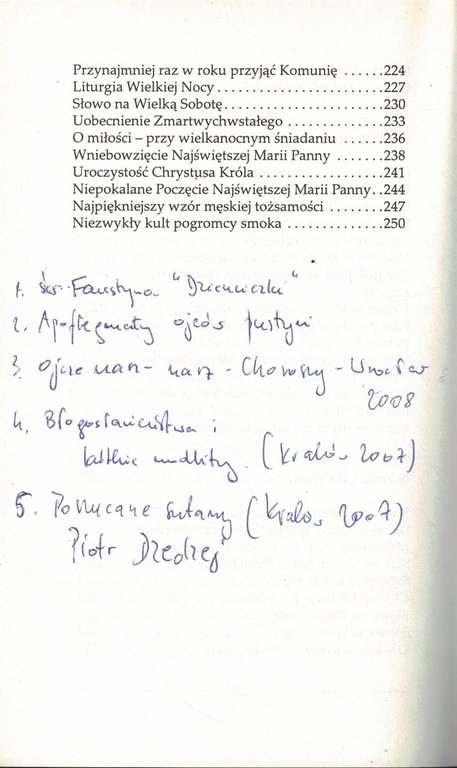 Przynajmniej raz w roku przyjąć Komunię ......224
Liturgia Wielkiej Nocy ......................227
Słowo na Wielką Sobotę......................230
Uobecnienie Zmartwychwstałego ............233
O miłości – przy wielkanocnym śniadaniu ......236
Wniebowzięcie Najświętszej Marii Panny .......238
Uroczystość Chrystusa Króla .................241
Niepokalane Poczęcie Najświętszej Marii Panny..244
Najpiękniejszy wzór męskiej tożsamości ........247
Niezwykły kult pogromcy smoka .............250
1. św. Faustyna "Dzienniczki"
2. Apoftegmaty ojców pustyni
3. Ojcze nasz - Chorosny - Wrocław
2008
4. Błogosławieństwa i
krótkie modlitwy. (Kraków 2007)
5. Porzucane sutanny (Kraków 2007)
Piotr Dzedzej